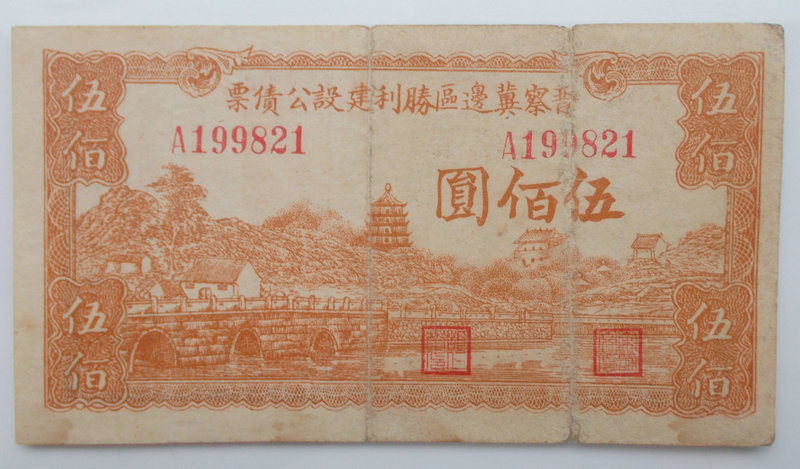 晉察冀邊區勝利建設公債票
A199821
A199821
伍佰圓
伍佰
伍佰
伍佰
伍佰